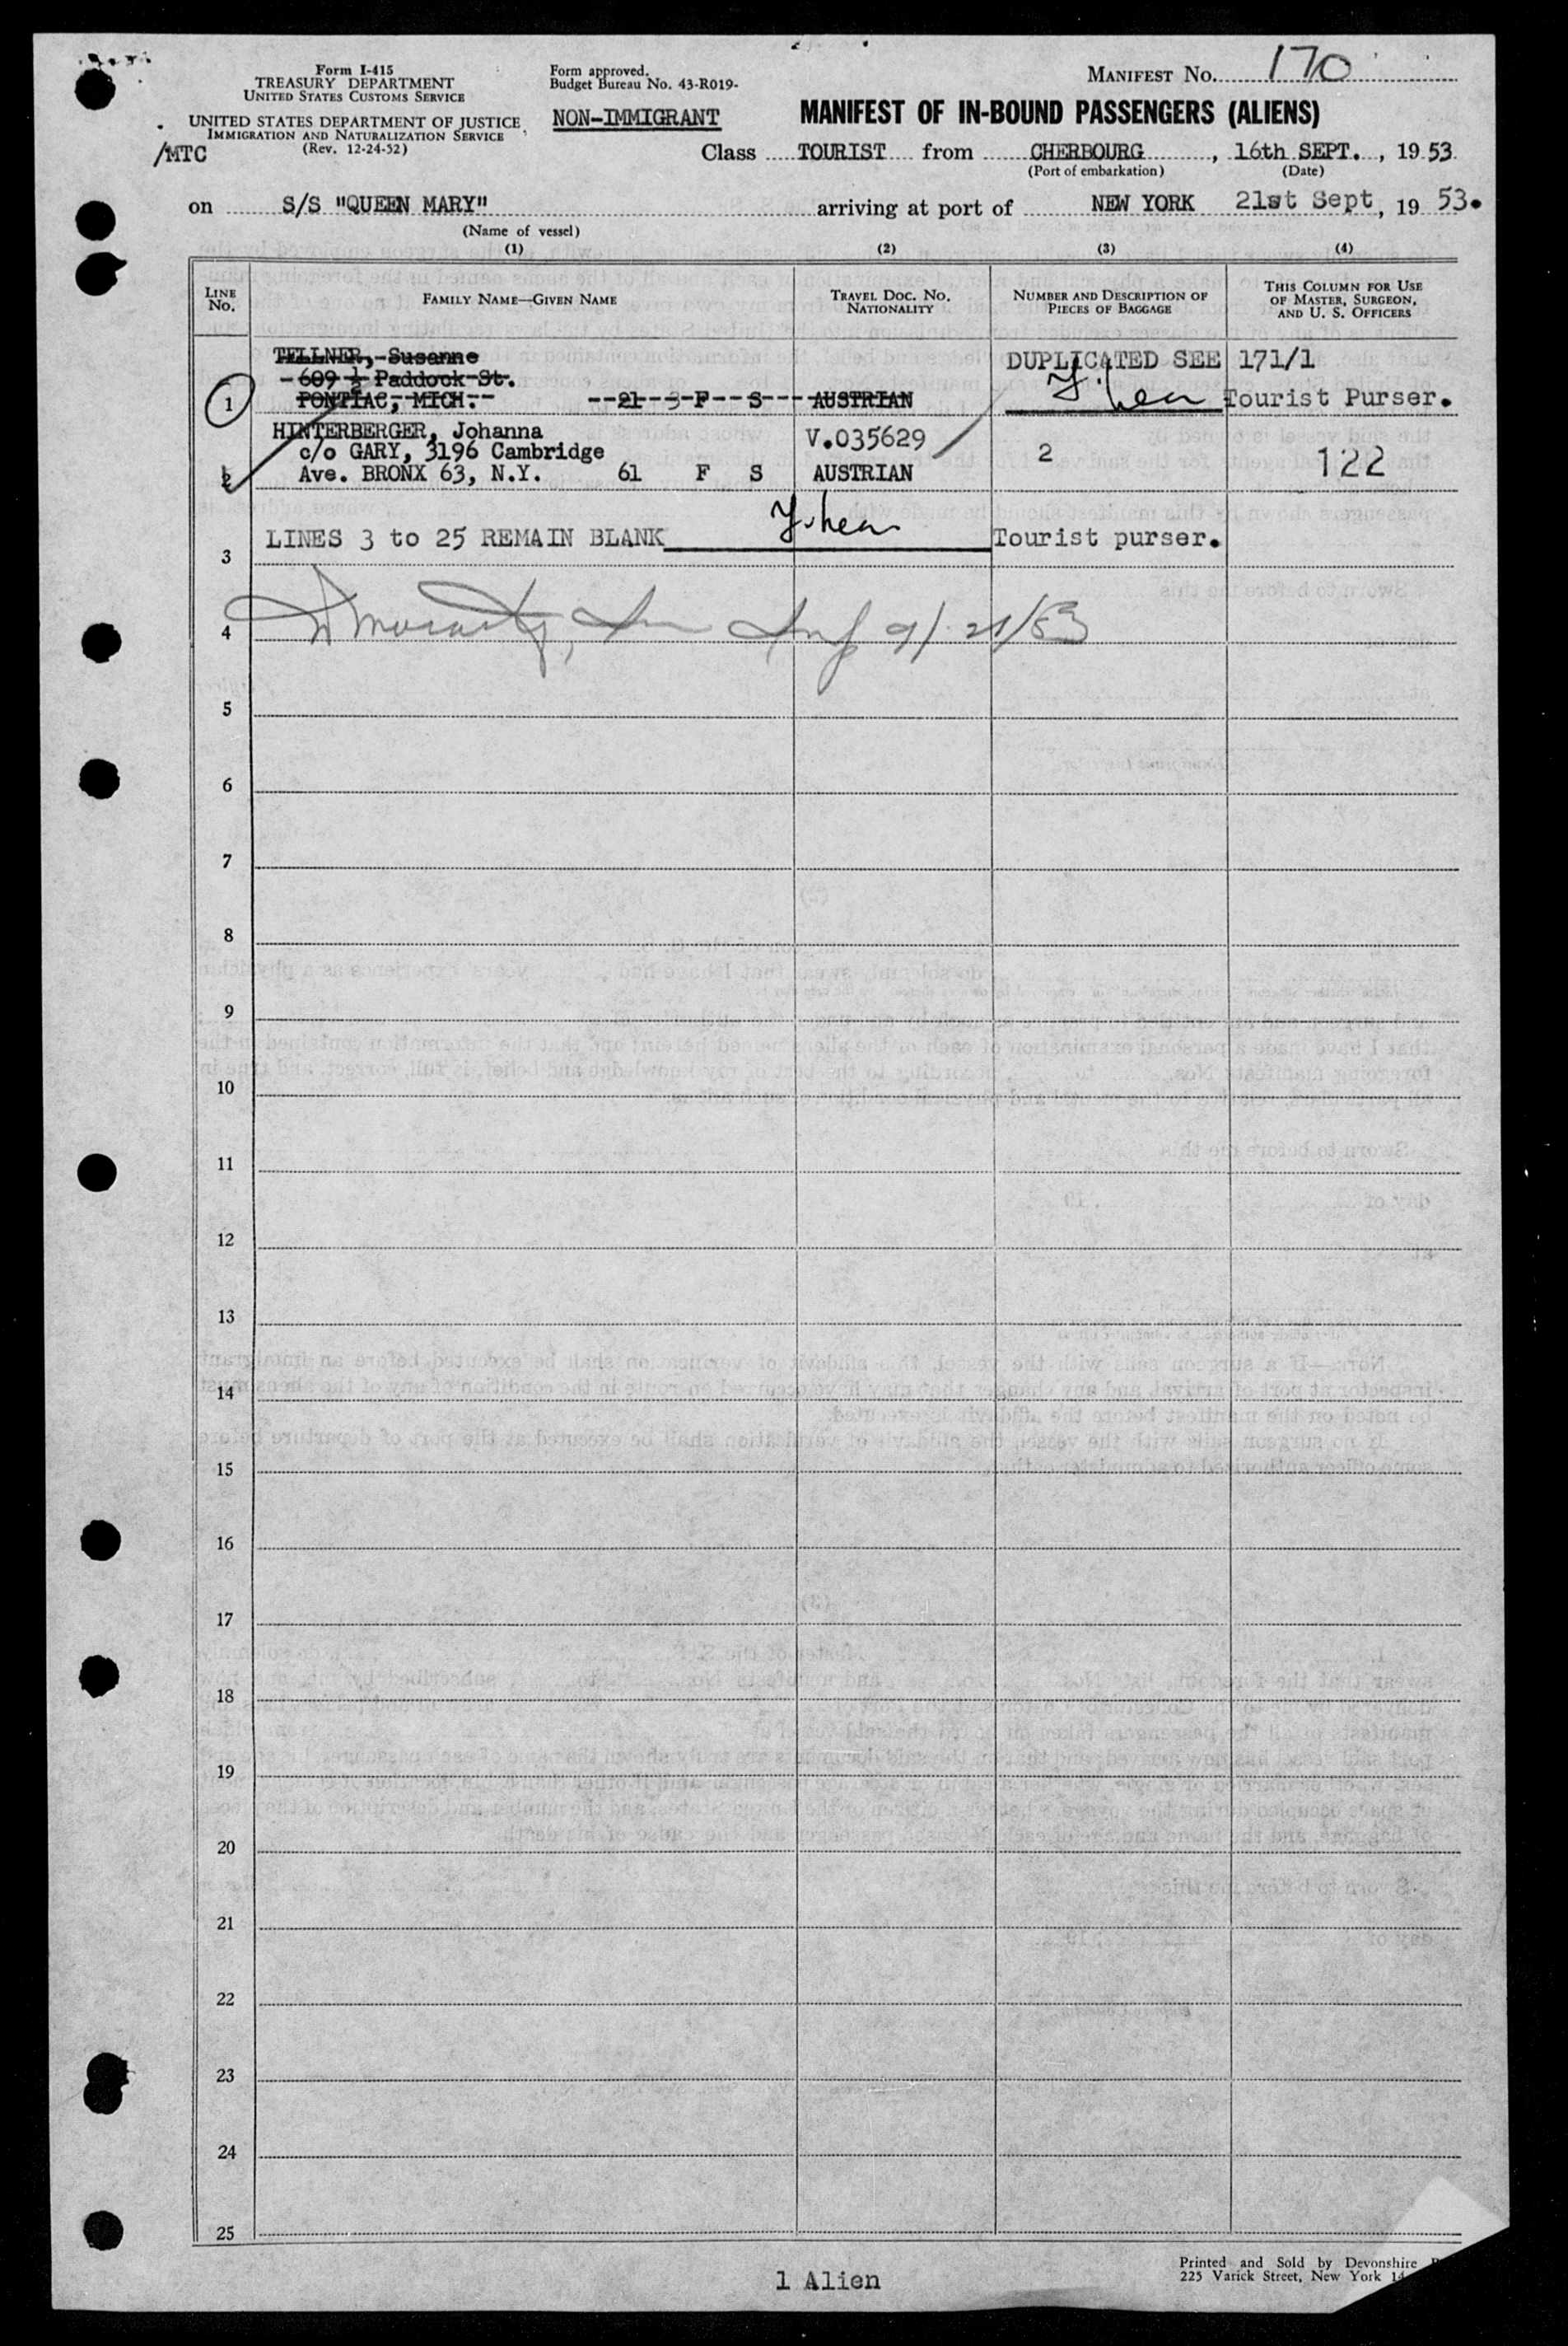 Form I-415
TREASURY DEPARTMENT
UNITED STATES CUSTOMS SERVICE
UNITED STATES DEPARTMENT OF JUSTICE
IMMIGRATION AND NATURALIZATION SERVICE
(Rev. 12-24-52)
/MTC
Form approved.
Budget Bureau No. 43-R019-
NON-IMMIGRANT
MANIFEST NO. 170
MANIFEST OF IN-BOUND PASSENGERS (ALIENS)
Class TOURIST from CHERBOURG, 16th SEPT., 1953
(Port of embarkation) (Date)
on S/S "QUEEN MARY" arriving at port of NEW YORK 21st Sept, 19 53.
(Name of vessel)
(1) (2) (3) (4)
LINE No.
FAMILY NAME—GIVEN NAME
TRAVEL DOC. NO. NATIONALITY
NUMBER AND DESCRIPTION OF PIECES OF BAGGAGE
THIS COLUMN FOR USE OF MASTER, SURGEON, AND U. S. OFFICERS
TELLNER, Susanne DUPLICATED SEE 171/1
609 ½ Paddock St.
1 PONTIAC, MICH. 21 F S AUSTRIAN Tourist Purser.
HINTERBERGER, Johanna V.035629
c/o GARY, 3196 Cambridge 2 122
2 Ave. BRONX 63, N.Y. 61 F S AUSTRIAN
3 LINES 3 to 25 REMAIN BLANK Tourist purser.
4 9/21/53
5
6
7
8
9
10
11
12
13
14
15
16
17
18
19
20
21
22
23
24
25
1 Alien
Printed and Sold by Devonshire
225 Varick Street, New York 14